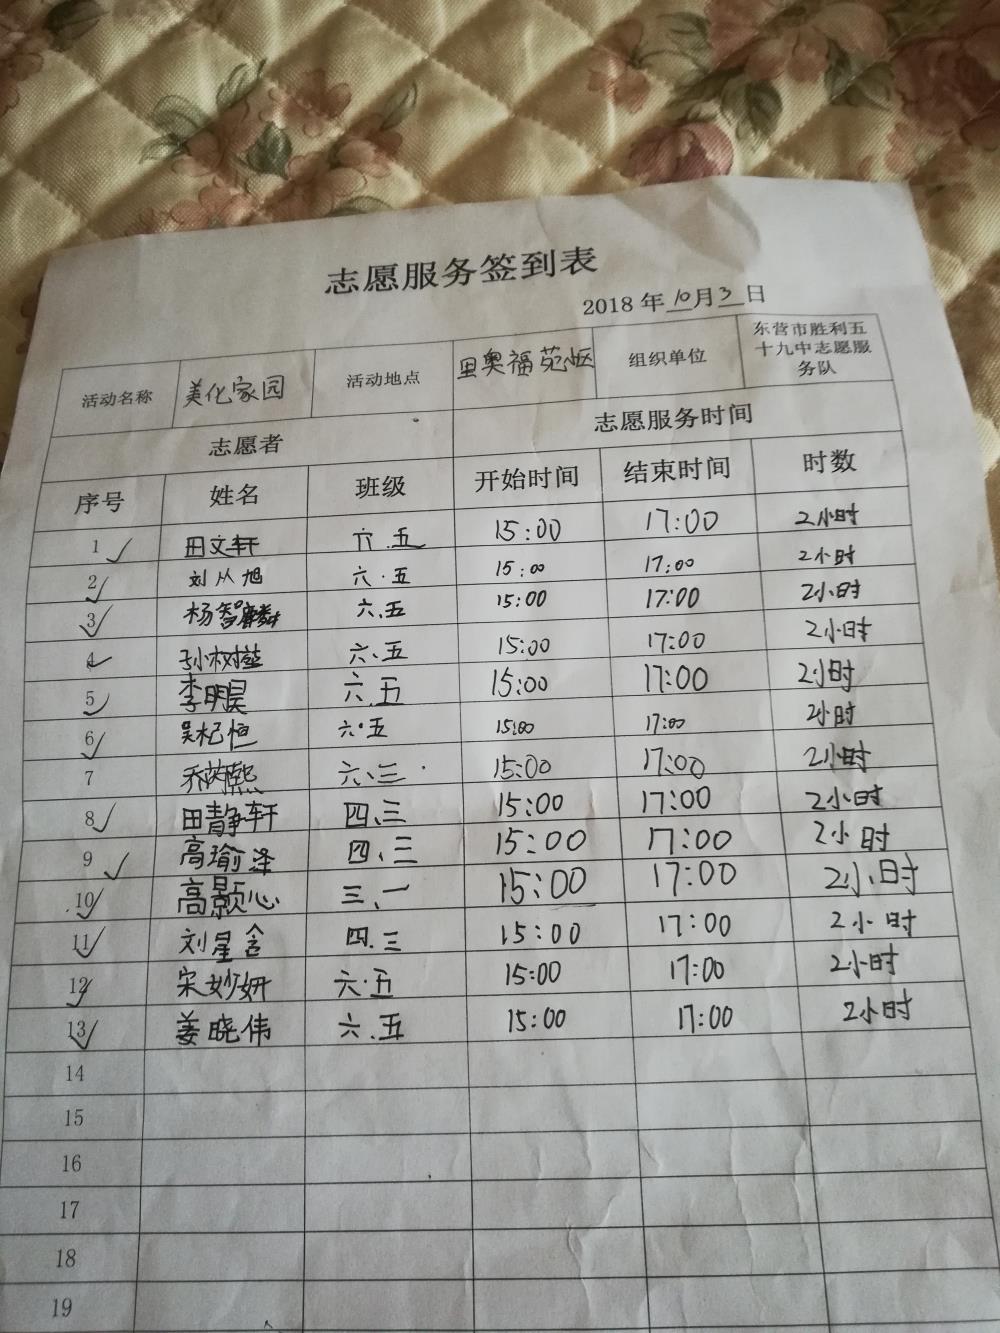 志愿服务签到表
2018 年 10 月 3 日
活动名称 美化家园 活动地点 里奥福苑小区 组织单位 东营市胜利五
十九中志愿服
务队
志愿者 志愿服务时间
序号 姓名 班级 开始时间 结束时间 时数
1 田文轩 六.五 15:00 17:00 2小时
2 刘从旭 六.五 15:00 17:00 2小时
3 杨智麟 六.五 15:00 17:00 2小时
4 孙树 六.五 15:00 17:00 2小时
5 李明昊 六.五 15:00 17:00 2小时
6 吴杞恒 六.五 15:00 17:00 2小时
7 乔 熙 六.三 15:00 17:00 2小时
8 田静轩 四.三 15:00 17:00 2小时
9 高瑜泽 四.三 15:00 17:00 2小时
10 高颢心 三.一 15:00 17:00 2小时
11 刘星含 四.三 15:00 17:00 2小时
12 宋妙妍 六.五 15:00 17:00 2小时
13 姜晓伟 六.五 15:00 17:00 2小时
14
15
16
17
18
19